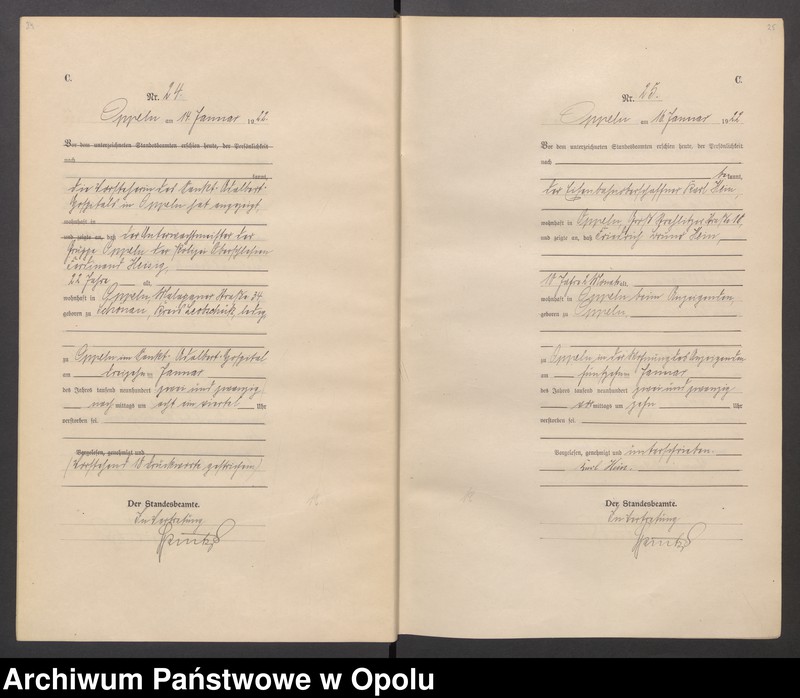 C.
Nr. 24.
Oppeln am 14. Januar 1922.
Vor dem unterzeichneten Standesbeamten erschien heute, der Persönlichkeit
nach
kannt,
die Vorsteherin des Sankt Adalbert-
Hospitals in Oppeln hat angezeigt,
wohnhaft in
und zeigte an, daß der Unterwachtmeister der
Gruppe Oppeln der Polizei Oberschlesien
Ferdinand
22 Jahre alt,
wohnhaft in Oppeln, Malapaner Straße 34
geboren zu Schönau, Kreis Leobschütz, ledig
zu Oppeln im Sankt Adalbert-Hospital
am dreizehn Januar
des Jahres tausend neunhundert zwei und zwanzig
nachmittags um acht ein viertel Uhr
verstorben sei.
Vorgelesen, genehmigt und
(Vorstehend 18 Druckworte gestrichen)
Der Standesbeamte.
In Vertretung
C.
Nr. 25.
Oppeln am 16. Januar 1922
Vor dem unterzeichneten Standesbeamten erschien heute, der Persönlichkeit
nach
bekannt,
der Eisenbahnoberschaffner Karl Hein,
wohnhaft in Oppeln, Groß Strehlitzer Straße
und zeigte an, daß Friedrich Bruno Hein,
Jahre 2 Monate alt,
wohnhaft in Oppeln beim Anzeigenden,
geboren zu Oppeln,
zu Oppeln, in der Wohnung des Anzeigenden
am fünfzehn Januar
des Jahres tausend neunhundert zwei und zwanzig
vormittags um zehn Uhr
verstorben sei.
Vorgelesen, genehmigt und unterschrieben.
Karl Hein.
Der Standesbeamte.
In Vertretung
Archiwum Państwowe w Opolu